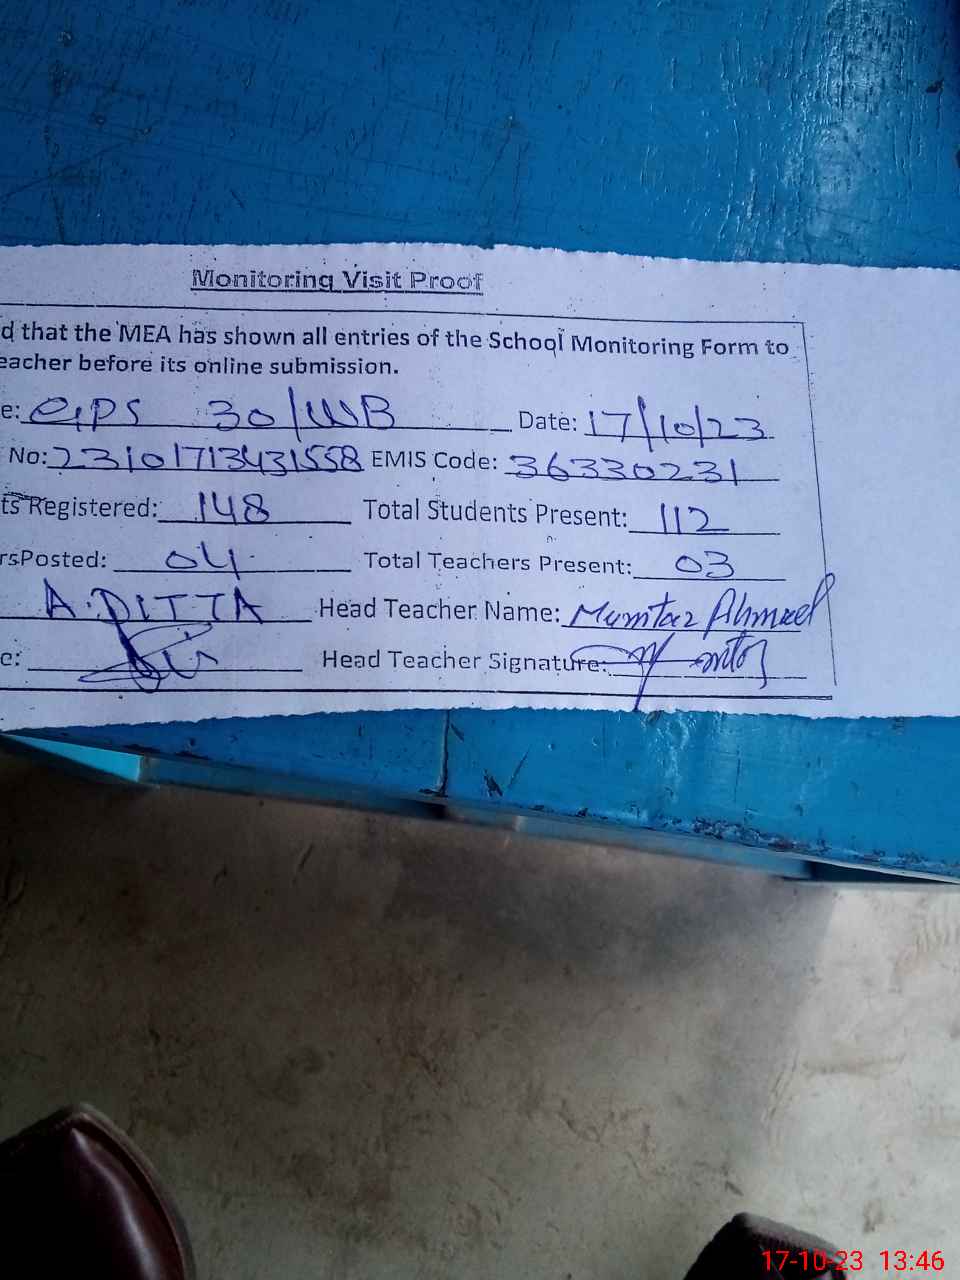 Monitoring Visit Proof
d that the MEA has shown all entries of the School Monitoring Form to
eacher before its online submission.
e: GPS 30/WB Date: 17/10/23
No: 23101713431558 EMIS Code: 36330231
ts Registered: 148 Total Students Present: 112
rsPosted: 04 Total Teachers Present: 03
A.DITTA Head Teacher Name: Mumtaz Ahmed
e: Head Teacher Signature:
17-10-23 13:46